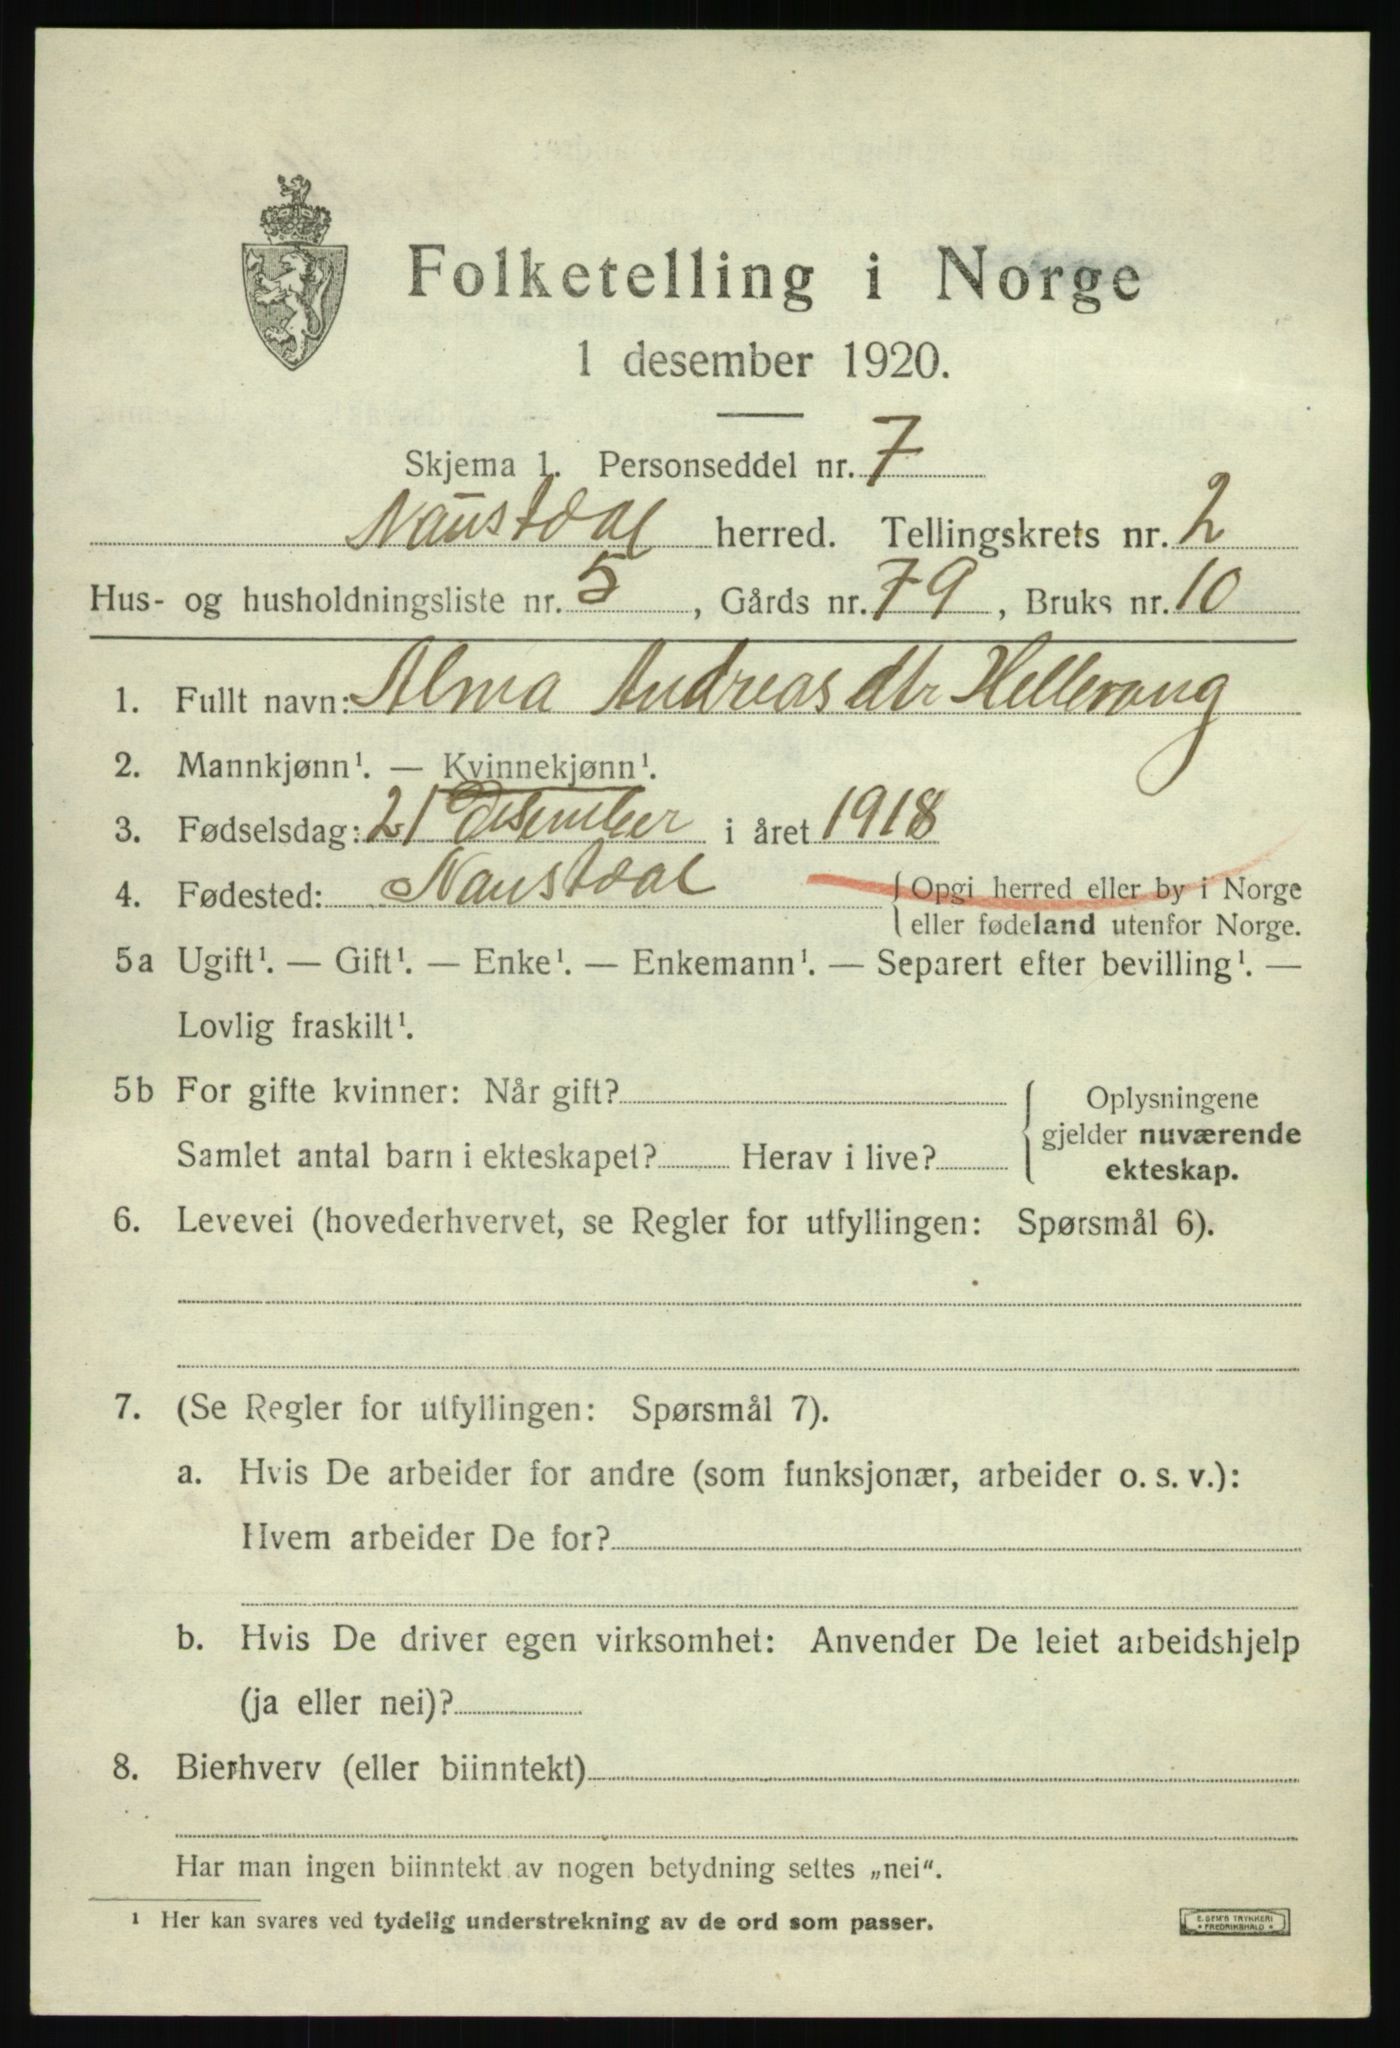 Folketelling i Norge
1 desember 1920.
Skjema 1. Personseddel nr. 7
Naustdal herred. Tellingskrets nr. 2
Hus- og husholdningsliste nr. 5, Gårds nr. 79, Bruks nr. 10
1. Fullt navn: Alma Andreasdtr Hellevang
2. Mannkjønn¹. — Kvinnekjønn¹.
3. Fødselsdag: 21 Desember i året 1918
4. Fødested: Naustdal {Opgi herred eller by i Norge
eller fødeland utenfor Norge.
5a Ugift¹. — Gift¹. — Enke¹. — Enkemann¹. — Separert efter bevilling¹. —
Lovlig fraskilt¹.
5b For gifte kvinner: Når gift? { Oplysningene
gjelder nuværende
Samlet antal barn i ekteskapet? Herav i live? ekteskap.
6. Levevei (hovederhvervet, se Regler for utfyllingen: Spørsmål 6).
7. (Se Regler for utfyllingen: Spørsmål 7).
a. Hvis De arbeider for andre (som funksjonær, arbeider o. s. v.):
Hvem arbeider De for?
b. Hvis De driver egen virksomhet: Anvender De leiet arbeidshjelp
(ja eller nei)?
8. Bierhverv (eller biinntekt)
Har man ingen biinntekt av nogen betydning settes „nei“.
¹ Her kan svares ved tydelig understrekning av de ord som passer.
E. SEM'S TRYKKERI
* FREDRIKSHALD *